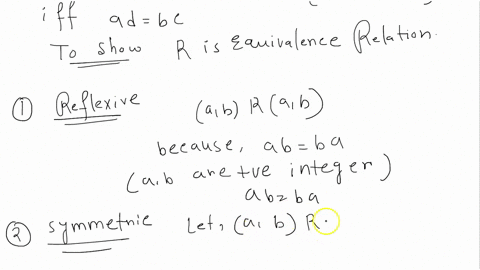 iff ad = bc
To show R is Equivalence Relation.
① Reflexive (a,b) R (a,b)
because, ab = ba
(a,b are +ve integer)
ab = ba
② symmetric Let, (a, b) R